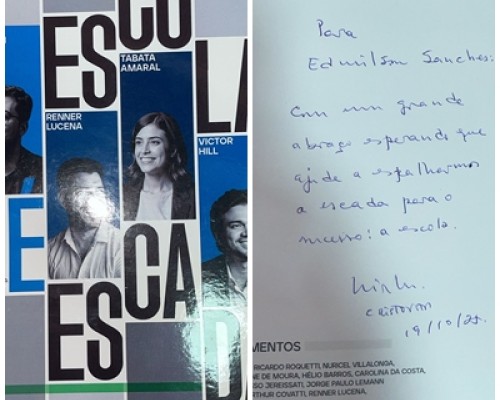 ESCO
LA
RENNER
LUCENA
TABATA
AMARAL
VICTOR
HILL
E
ESCA
D
Para
Edmilson Sanches:
Com um grande
abraço esperando que
ajude a espalharmos
a escada para o
sucesso: a escola.
CRISTOVAM
19/10/25.
MENTOS
RICARDO ROQUETTI, NURICEL VILLALONGA,
NE DE MOURA, HÉLIO BARROS, CAROLINA DA COSTA,
GO JEREISSATI, JORGE PAULO LEMANN
RTHUR COVATTI, RENNER LUCENA,